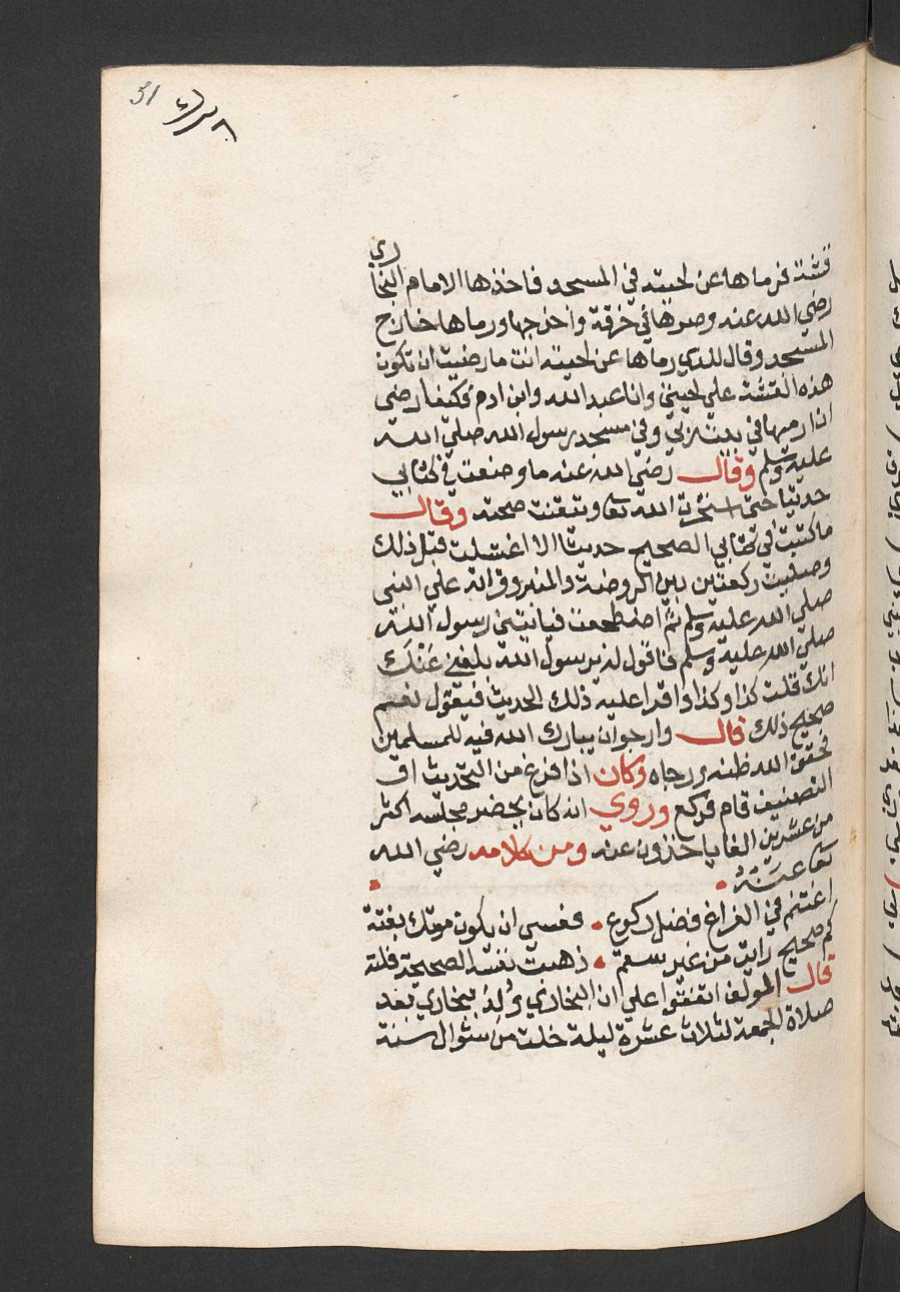 31
قشة فرماها عن لحيته في المسجد فاخذها الامام البخاري
رضي الله عنه وصرها في خرقة واخرجها ورماها خارج
المسجد وقال للذي رماها عن لحيته انت ما رضيت ان تكون
هذه القشة علي لحيتي وانا عبد الله وابن ادم فكيف ارضى
اذا رميها في بيت ربي وفي مسجد رسول الله صلي الله
عليه وسلم وقال رضي الله عنه ما وضعت في كتابي
حديثا حتى استخرت الله تعا وتيقنت صحته وقال
ما كتبت في كتابي الصحيح حديثا الا اغتسلت قبل ذلك
وصليت ركعتين بين الروضة والمنبر وقراته علي النبي
صلي الله عليه وسلم ثم اضطجعت فياتيني رسول الله
صلي الله عليه وسلم فاقول له يرسول الله بلغني عَنْكَ
انك قلت كذا وكذا واقرا عليه ذلك الحديث فيقول نعم
صحيح ذلك قال وارجوان يبارك الله فيه للمسلمين
فحقق الله ظنه ورجاه وكان اذا فرغ من التحديث او
التصنيف قام فركع وروي انه كان يحضر مجلسه اكثر
من عشرين الفا ياخذون عنه ومن كلامه رضي الله
تعا عَنْهُ
اغتنم في الفراغ فضل ركوع فعسى ان يكون موتك بغتة
كم صحيح رايت من غير سقم ذهبت نفسه الصحيحة فلتة
قال المولف اتفقوا علي ان البخاري وُلِدَ ببخاري بعد
صلاة الجمعة لثلاث عشرة ليلة خلت من شوال سنة